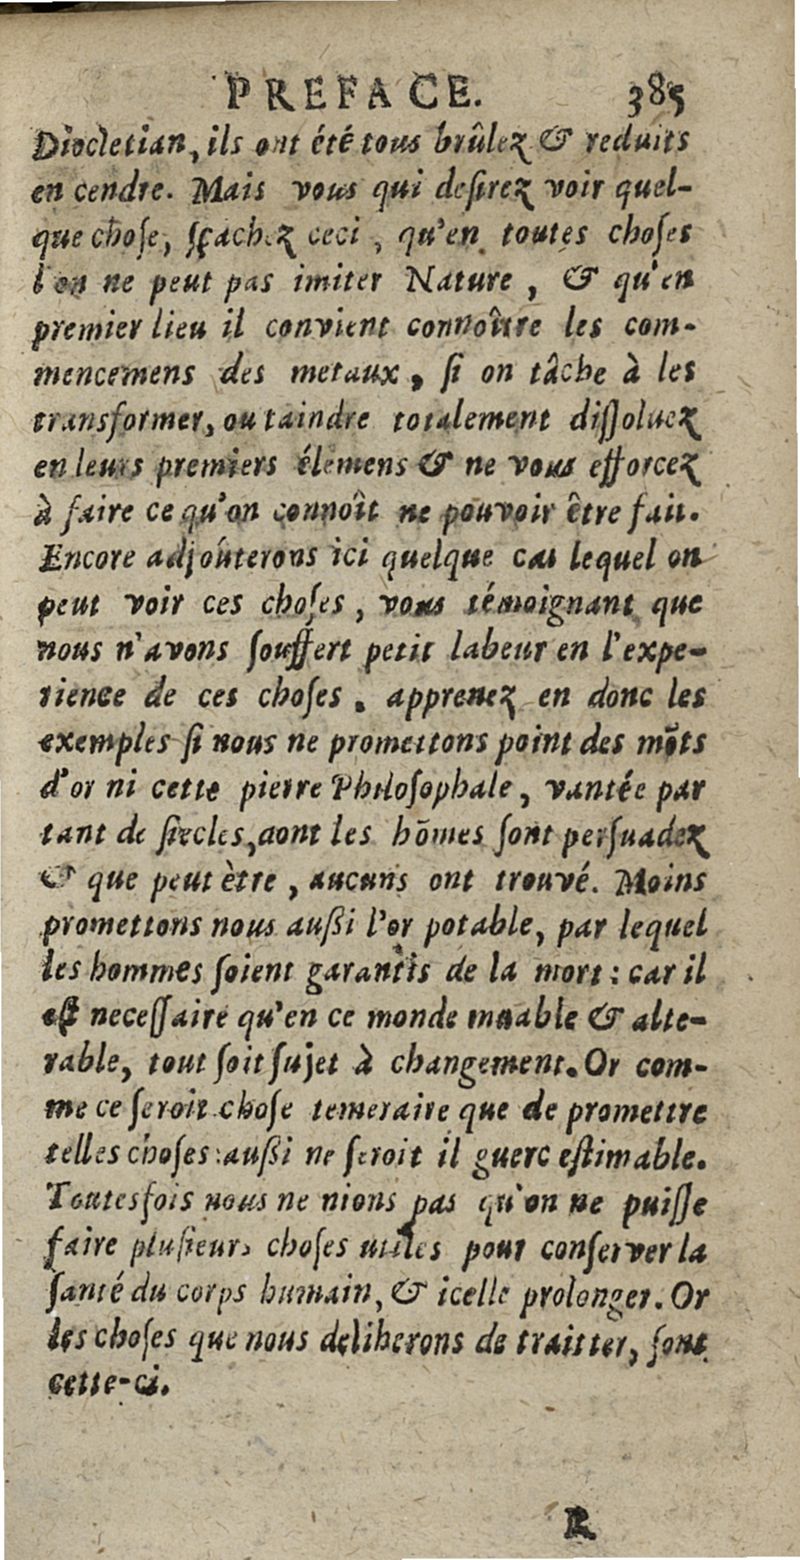 PREFACE. 385
Diocletian, ils ont été tous brûlez & reduits
en cendre. Mais vous qui desirez voir quel-
que chose, sçachez ceci, qu'en toutes choses
l'on ne peut pas imiter Nature, & qu'en
premier lieu il convient connoître les com-
mencemens des metaux, si on tâche à les
transformer, ou taindre totalement dissoluez
en leurs premiers élemens & ne vous efforcez
à faire ce qu'on connoît ne pouvoir être fait.
Encore adjoûterons ici quelque cas lequel on
peut voir ces choses, vous témoignant que
nous n'avons souffert petit labeur en l'expe-
rience de ces choses. apprenez en donc les
exemples si nous ne promettons point des mõts
d'or ni cette pierre Philosophale, vantée par
tant de siecles, dont les hõmes sont persuadez
& que peut ètre, aucuns ont trouvé. Moins
promettons nous aussi l'or potable, par lequel
les hommes soient garantis de la mort: car il
est necessaire qu'en ce monde muable & alte-
rable, tout soit sujet à changement. Or com-
me ce seroit chose temeraire que de promettre
telles choses: aussi ne seroit il guere estimable.
Toutesfois nous ne nions pas qu'on ne puisse
faire plusieurs choses utiles pour conserver la
santé du corps humain, & icelle prolonger. Or
les choses que nous deliberons de traitter, sont
cette-ci.
R